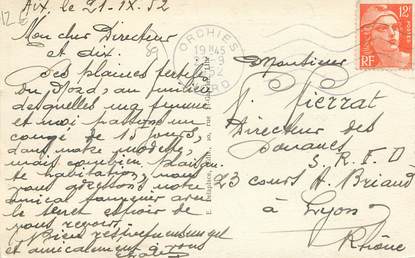 12 €
Aix. le 21-IX.52
Mon cher Directeur
et ami.
Des plaines fertiles
du Nord, au milieu
desquelles ma femme
et moi passons un
congé de 15 jours,
dans notre modeste,
mais combien plaisan-
te habitation, nous
vous adressons notre
amical souvenir avec
le secret espoir de
vous revoir.
Bien respectueusement
et amicalement à vous
ORCHIES
19 845
-9
52
NORD
12F
POSTES
RF
Monsieur
J. Pierrat
Directeur des
Douanes
S. R. F. D
23 cours A. Briand
à Lyon
Rhône